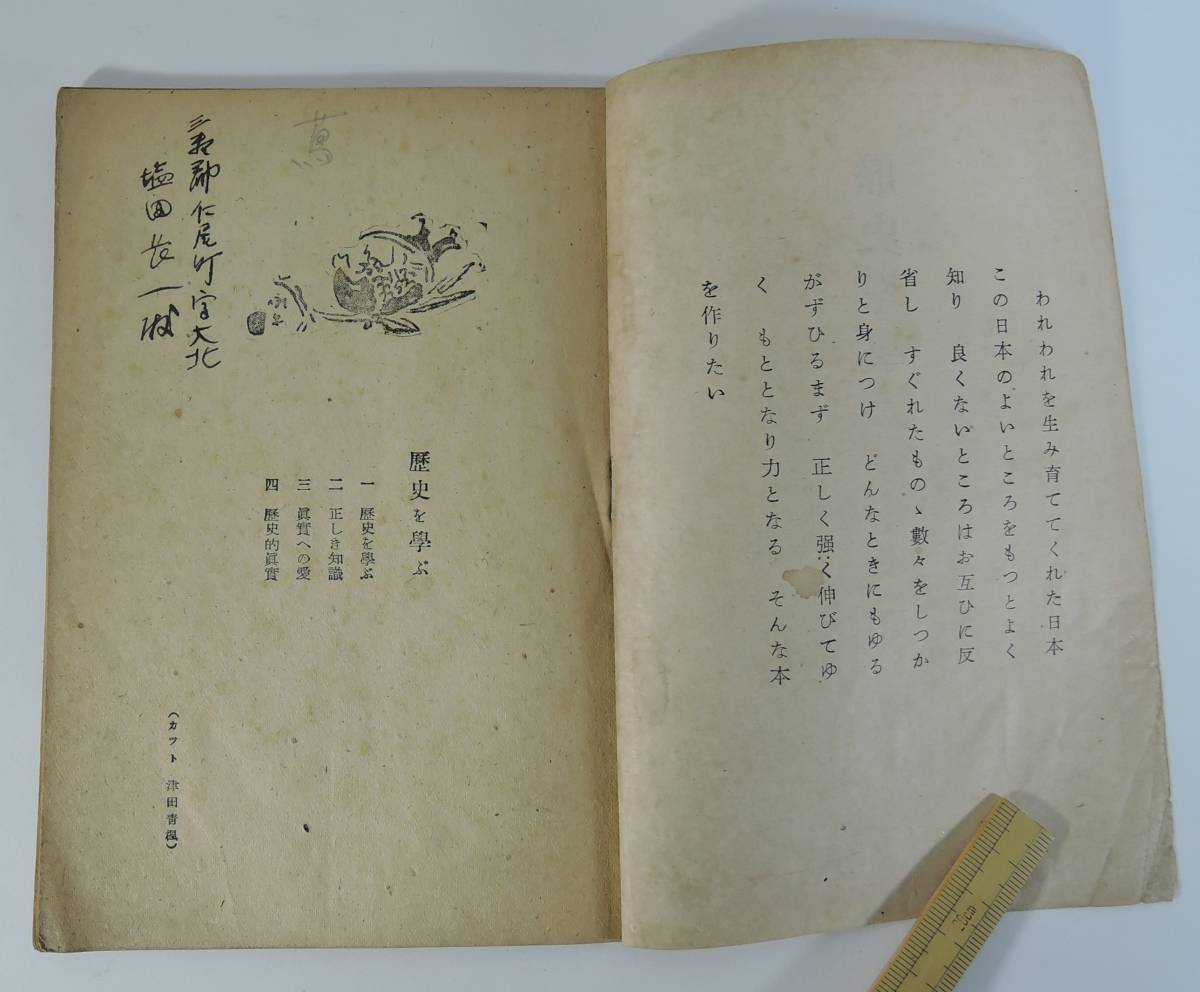 われわれを生み育ててくれた日本
この日本のよいところをもつとよく
知り　良くないところはお互ひに反
省し　すぐれたものゝ數々をしつか
りと身につけ　どんなときにもゆる
がずひるまず　正しく强く伸びてゆ
く　もととなり力となる　そんな本
を作りたい
歷史を學ぶ
一　歷史を學ぶ
二　正しき知識
三　眞實への愛
四　歷史的眞實
（カット　津田靑楓）
蔦
郡仁尾町字大北
塩田長一
20cm